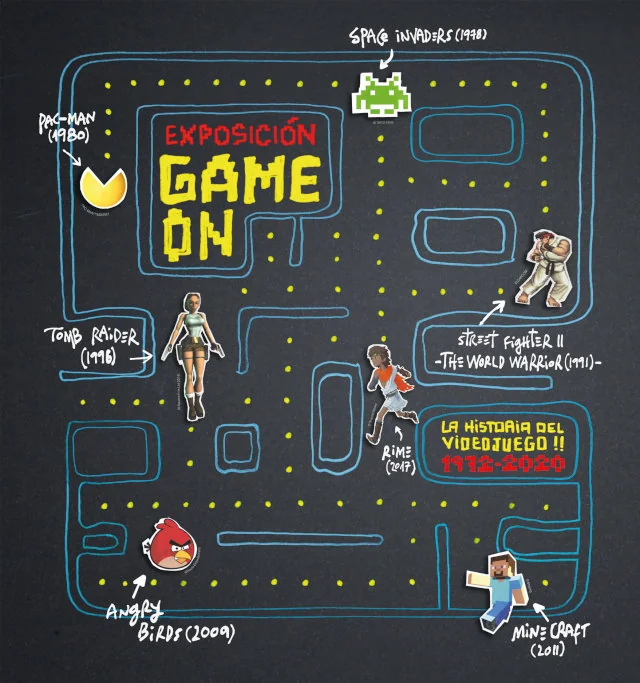 SPACE INVADERS (1978)
PAC-MAN
(1980)
EXPOSICIÓN
GAME
ON
TOMB RAIDER
(1996)
STREET FIGHTER II
-THE WORLD WARRIOR (1991)-
RIME
(2017)
LA HISTORIA DEL
VIDEOJUEGO !!
1972-2020
ANGRY
BIRDS (2009)
MINECRAFT
(2011)